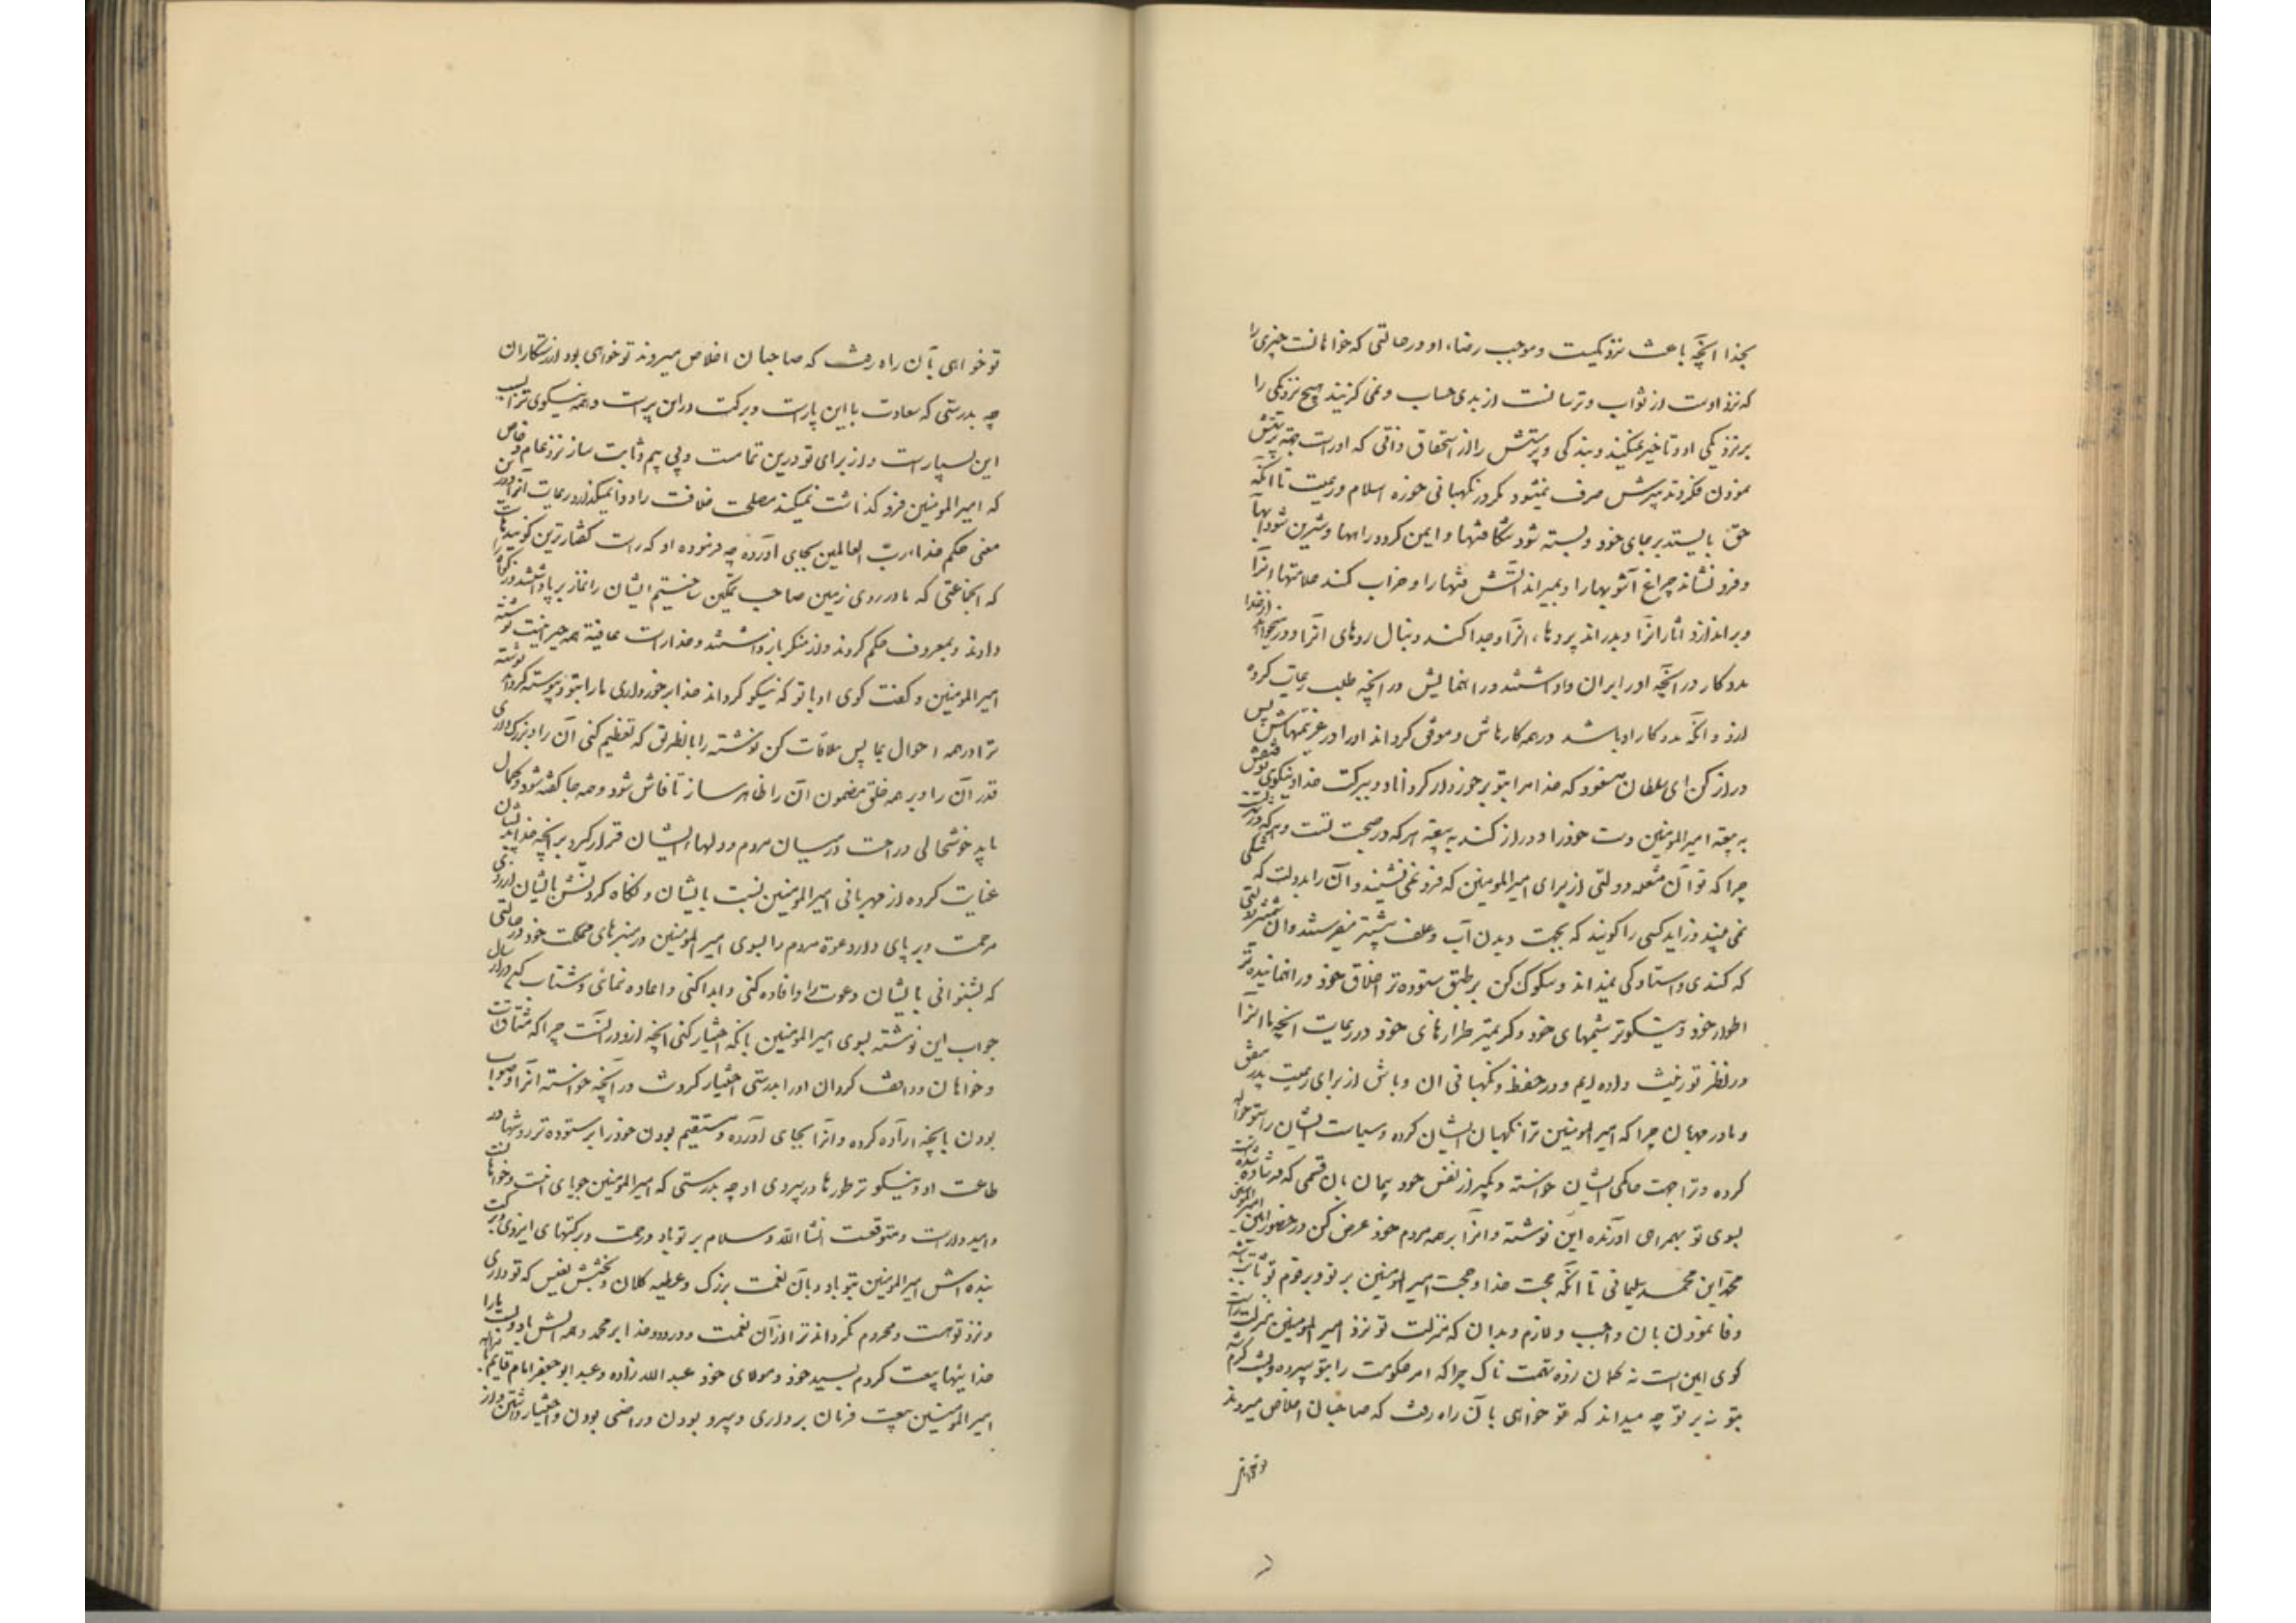 بخدا آنچه باعث نزدیکیست و موجب رضاء او در حالتی که خواهانست چیزی را
که نزد اوست از ثواب و ترسانست از بدی حساب و نمی‌گزیند هیچ نزدیکی را
بر نزدیکی او و تاخیر نمیکند و بندگی و پرستش را از استحقاق ذاتی که اوراست
نمودن فکر و تدبیرش صرف نمیشود مگر در نگهبانی حوزه اسلام و رعیت تا آنکه
حق بایستد بر جای خود و بسته شود شکافتها و ایمن گردد راهها و شیرین شود آبها
و فرو نشاند چراغ آشوبها را و بمیراند آتش فتنها را و خراب کند علامتها آنرا
و براندازد آثار آنرا و بدراند پردهاء آنرا و جدا کند دنبال روهای آنرا و در میخواهد از خدا
مددکار در آنچه او را بران داداشتند و راهنمایش در آنچه طلب رعایت کرده
ازو و آنکه مددکار او باشد در همه کارهاش و موفق گرداند او را در عزیمتهاش پس
دراز کن ای سلطان مسعود که خدا مرا بتو برخوردار گرداناد و ببرکت خدا و نیکوی توفیقش
به بیعة امیرالمومنین دست خود را و دراز کند به بیعة هر که در صحبت تست و هر که در
چرا که تو آن شعله دولتی از برای امیرالمومنین که فرو نمی‌نشیند و آن رایدولت که
نمی‌بیند و زاید کسی را گویند که بجهت دیدن آب و علف پیشتر میفرستند و آن شمشیر دولتی
که کندی و استادگی نمیداند و سلوک کن بر طبق ستوده‌تر اخلاق خود و راهنماینده‌تر
اطوار خود و نیکوتر شیمهای خود و کریمتر طرازهای خود در رعایت آنچه ما آنرا
در نظر تو زینت داده‌ایم و در حفظ و نگهبانی آن و باش از برای رعیت پدر مشفق
و مادر مهربان چرا که امیرالمومنین ترا نگهبان ایشان کرده و سیاست ایشان را بتو حواله
کرده و ترا جهت حاکمی ایشان خواسته و بگیر از نفس خود پیمان بآن قسمی که فرستاده شده
بسوی تو بهمراهی آورنده این نوشته و آنرا بر همه مردم خود عرض کن در حضور امین امیرالمومنین
محمد ابن محمد سلیمانی تا آنکه حجت خدا و حجت امیرالمومنین بر تو و بر قوم تو ثابت باشد
و وفا نمودن بآن واجب و لازم و بدان که منزلت تو نزد امیرالمومنین منزلت راست
گوی امین است نه گمان زده تهمت ناک چرا که امر حکومت را بتو سپرده و پشت گرم شد
بتو نه بر تو چه میداند که تو خواهی بآن راه رفت که صاحبان اخلاص میروند
تو خواهی بآن راه رفت که صاحبان اخلاص میروند تو خواهی بود از رستگاران
چه بدرستی که سعادت با این یارست و برکت در این پر است و همه نیکوی ترا بسبب
این بسیار است و از برای تو درین تمامست و پی بیم و ثابت ساز نزد عام و خاص این
که امیرالمومنین فرو گذاشت نمیکند مصلحت خلافت را و وا نمیگذارد رعایت آنرا و در
معنی حکم خداء رب العالمین بجای آورده چه فرموده او که راست گفتارترین گویندهاست
که آنجماعتی که ما در روی زمین صاحب تمکین ساختیم ایشان را نماز برپا داشتند و زکوة را
دادند و بمعروف حکم کردند و از منکر باز داشتند و خداراست عاقبة همه چیز اینست نوشته
امیرالمومنین و گفت گوی او با تو که نیکو گرداند خدا برخورداری ما را بتو و پیوسته گرداند
ترا در همه احوال بما پس ملاقات کن نوشته را بآنطریق که تعظیم کنی آن را و بزرگ داری
قدر آن را و بر همه خلق مضمون آن را ظاهر ساز تا فاش شود و همه جا گفته شود و بکمال
باید خوشحالی و راحت در میان مردم و دلهاء ایشان قرار گیرد بر آنچه خدا بایشان
عنایت کرده از مهربانی امیرالمومنین نسبت بایشان و نگاه کردنش بایشان از روی
مرحمت و بر پای دار دعوة مردم را بسوی امیرالمومنین در منبرهای مملکت خود در حالتی
که بشنوانی بایشان دعوت را و افاده کنی و ابدا کنی و اعاده نمائی و شتاب کن در ارسال
جواب این نوشته بسوی امیرالمومنین بآنکه اختیار کنی آنچه ازو در آنست چرا که مشتاقست
و خواهان و واقف گردان او را بدرستی اختیار کردنت در آنچه خواسته آنرا و صواب
بودن بآنچه اراده کرده و آنرا بجای آورده و مستقیم بودن خود را بر ستوده‌تر روشها در
طاعت او و نیکوتر طورها در پیروی او چه بدرستی که امیرالمومنین جویای آنست و خواهانست
و امیدوارست و متوقعست انشاالله و سلام بر تو باد و رحمت و برکتهای ایزدی و برکت
بنده‌اش امیرالمومنین بتو باد و بآن نعمت بزرگ و عطیه کلان و بخشش نفیس که تو داری
و نزد توست و محروم نگرداند ترا از آن نعمت و درود خدا بر محمد و همه آلش باد
خدا بیعت کردم بسید خود و مولای خود عبد الله زاده و عبد ابو جعفر امام قایم
امیرالمومنین بیعت فرمان برداری و پیرو بودن و راضی بودن و اختیار داشتن و از